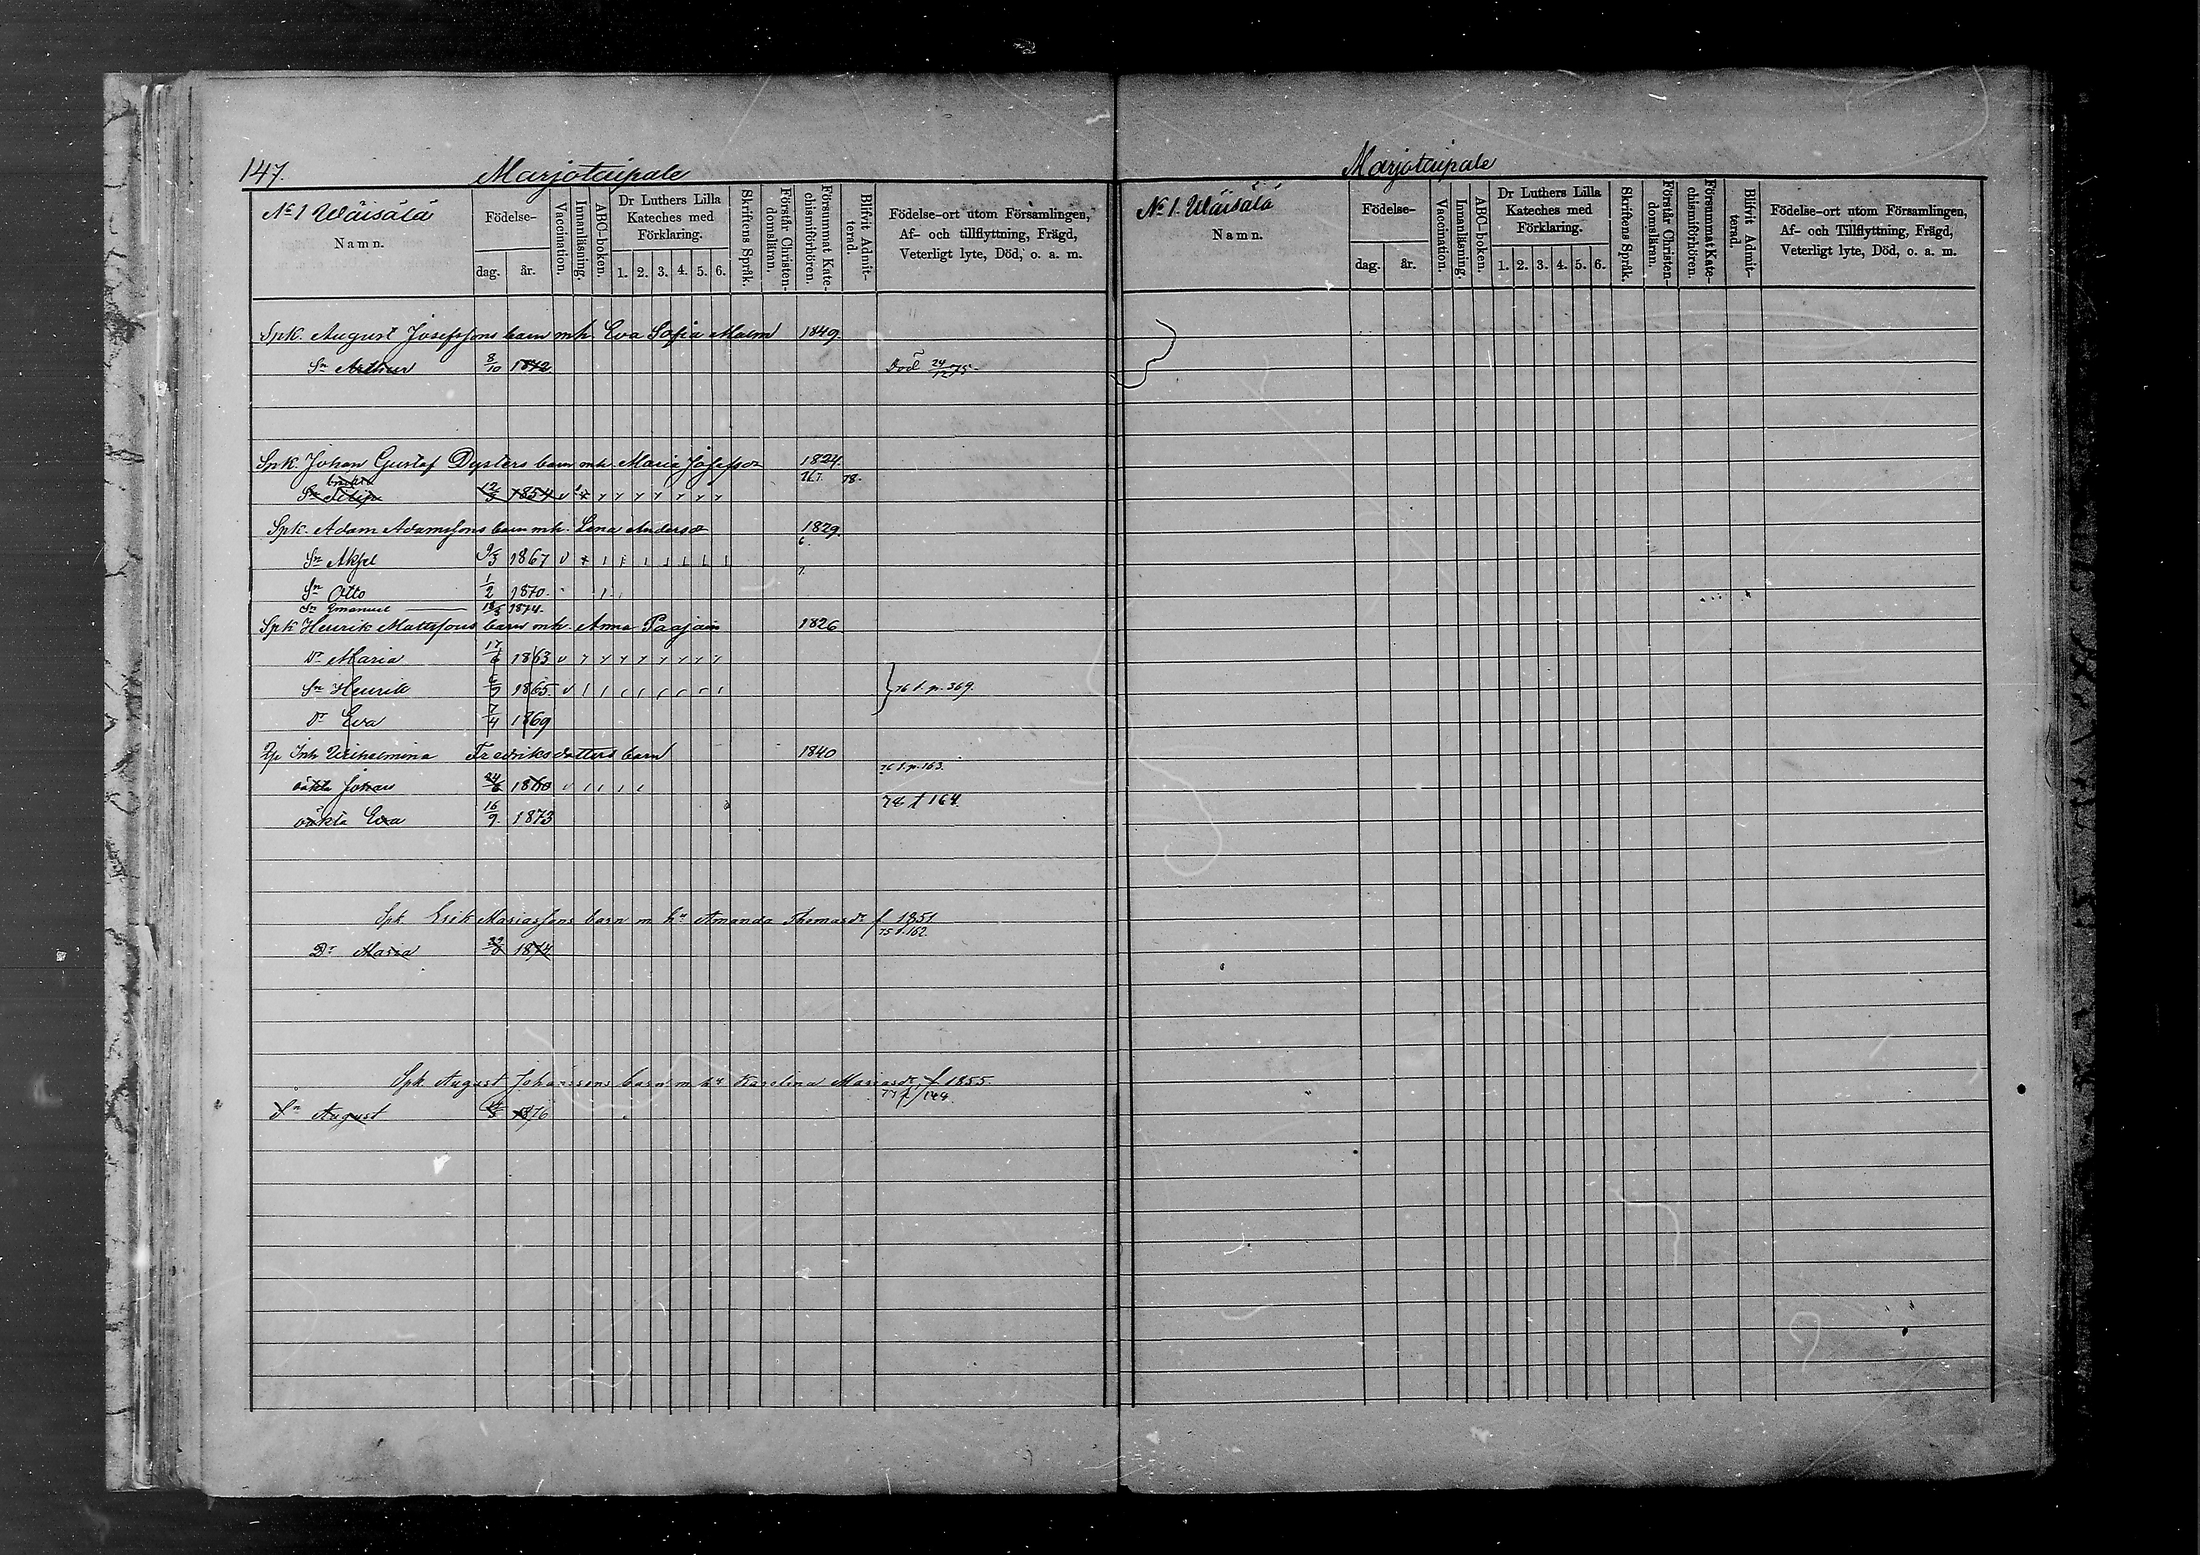 147. Marjotaipale
No 1 Wäisälä
Namn.
Födelse-
dag. år.
Vaccination.
Innanläsning.
ABC-boken.
Dr Luthers Lilla Kateches med Förklaring.
1. 2. 3. 4. 5. 6.
Skriftens Språk.
Förstår Christendomsläran.
Försummat Katechismiförhören.
Blifvit Admitterad.
Födelse-ort utom Församlingen,
Af- och tillflyttning, Frägd,
Veterligt lyte, Död, o. a. m.
Spk. August Josefssons barn mh. Eva Sofia Malm 1849.
Sn Arthur 8/10 1872. Död 24/12 75.
Spk. Johan Gustaf Dysters barn mh Maria Josefsdr 1824.
Sn 12/3 1854 v 78.
Spk. Adam Adamssons barn mh. Lena Andersdr 1829.
6.
Sn Aksel 9/3 1867 v
7.
Sn Otto 1/2 1870.
Sn Emanuel 1874.
Spk Henrik Mattssons barn mh. Anna Paajain 1826
Dr Maria 17/6 1863 v
Sn Henrik 1865. v } 76 f. p. 369.
Dr Eva 7/4 1869
Inh Wilhelmina Fredriksdotters barn 1840
76 f. p. 163.
oäkta Johan 24/6 1860 v
78 f 164.
oäkta Eva 16/9. 1873
Spk Erik Mariassons barn m hu Amanda Thomasdr f 1851
75 f. 162.
Dr Maria 1874
Spk August Johanssons barn m hu Karolina Mariasdr f 1855.
77 f 144.
Sn August 1876
Marjotaipale
No 1. Wäisälä
Namn.
Födelse-
dag. år.
Vaccination.
Innanläsning.
ABC-boken.
Dr Luthers Lilla Kateches med Förklaring.
1. 2. 3. 4. 5. 6.
Skriftens Språk.
Förstår Christendomsläran.
Försummat Katechismiförhören.
Blifvit Admitterad.
Födelse-ort utom Församlingen,
Af- och Tillflyttning, Frägd,
Veterligt lyte, Död, o. a. m.